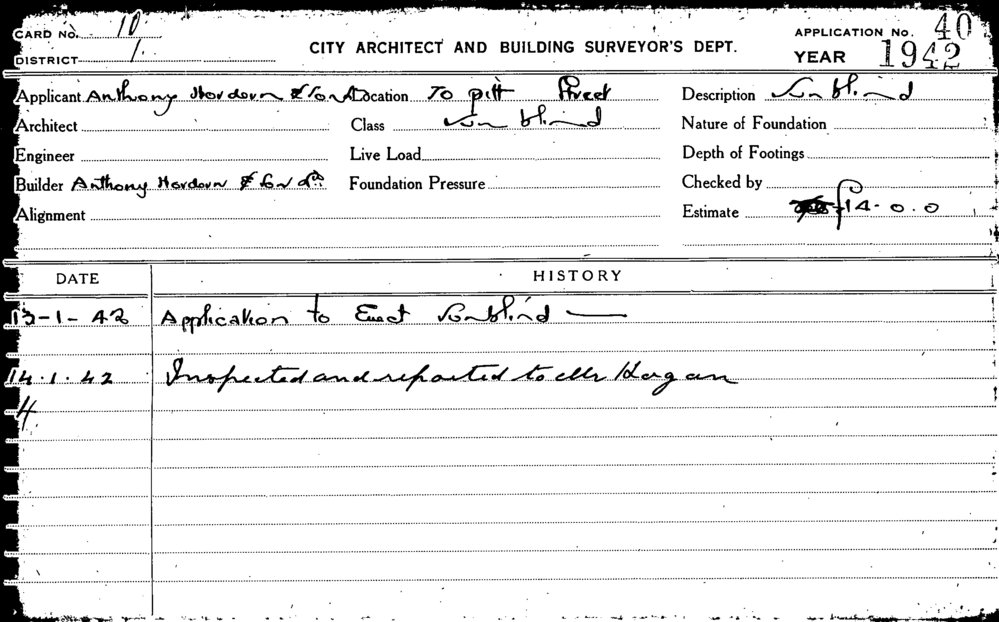 CARD No. 10
DISTRICT 1.
CITY ARCHITECT AND BUILDING SURVEYOR'S DEPT.
APPLICATION No. 40
YEAR 1942
Applicant Anthony Hordern & Sons Location To Pitt Street Description Sunblind
Architect Class Sunblind Nature of Foundation
Engineer Live Load Depth of Footings
Builder Anthony Hordern & Son Ld Foundation Pressure Checked by
Alignment Estimate £14-0.0
DATE HISTORY
13-1-42 Application to Erect Sunblind —
14.1.42 Inspected and reported to Mr Horgan
4